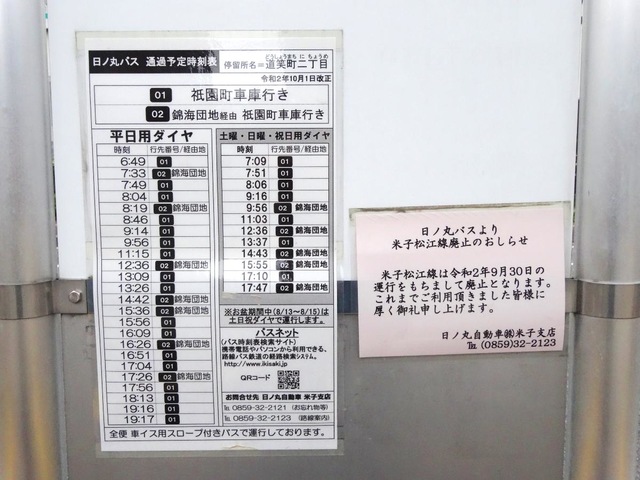 日ノ丸バス 通過予定時刻表
停留所名＝道笑町二丁目
どうしょうまち に ちょうめ
令和2年10月1日改正
01 祇園町車庫行き
02 錦海団地経由 祇園町車庫行き
平日用ダイヤ
時刻 行先番号/経由地
6:49 01
7:33 02 錦海団地
7:49 01
8:04 01
8:19 02 錦海団地
8:46 01
9:14 01
9:56 01
11:15 01
12:36 02 錦海団地
13:09 01
13:26 01
14:42 02 錦海団地
15:36 02 錦海団地
15:56 01
16:09 01
16:26 02 錦海団地
16:51 01
17:04 01
17:26 02 錦海団地
17:56 01
18:13 01
19:16 01
19:17 01
土曜・日曜・祝日用ダイヤ
時刻 行先番号/経由地
7:09 01
7:51 01
8:06 01
9:16 01
9:56 02 錦海団地
11:03 01
12:36 02 錦海団地
13:37 01
14:43 02 錦海団地
15:55 02 錦海団地
17:10 01
17:47 02 錦海団地
※お盆期間中(8/13～8/15)は
土日祝ダイヤで運行します。
バスネット
(バス時刻表検索サイト)
携帯電話やパソコンから利用できる、
路線バス鉄道の経路検索システム。
http://www.ikisaki.jp
QRコード
お問合せ先 日ノ丸自動車 米子支店
℡ 0859-32-2121 (お忘れ物等)
℡ 0859-32-2123 (路線案内)
全便 車イス用スロープ付きバスで運行しております。
日ノ丸バスより
米子松江線廃止のおしらせ
米子松江線は令和2年9月30日の
運行をもちまして廃止となります。
これまでご利用頂きました皆様に
厚く御礼申し上げます。
日ノ丸自動車㈱米子支店
℡ (0859)32-2123